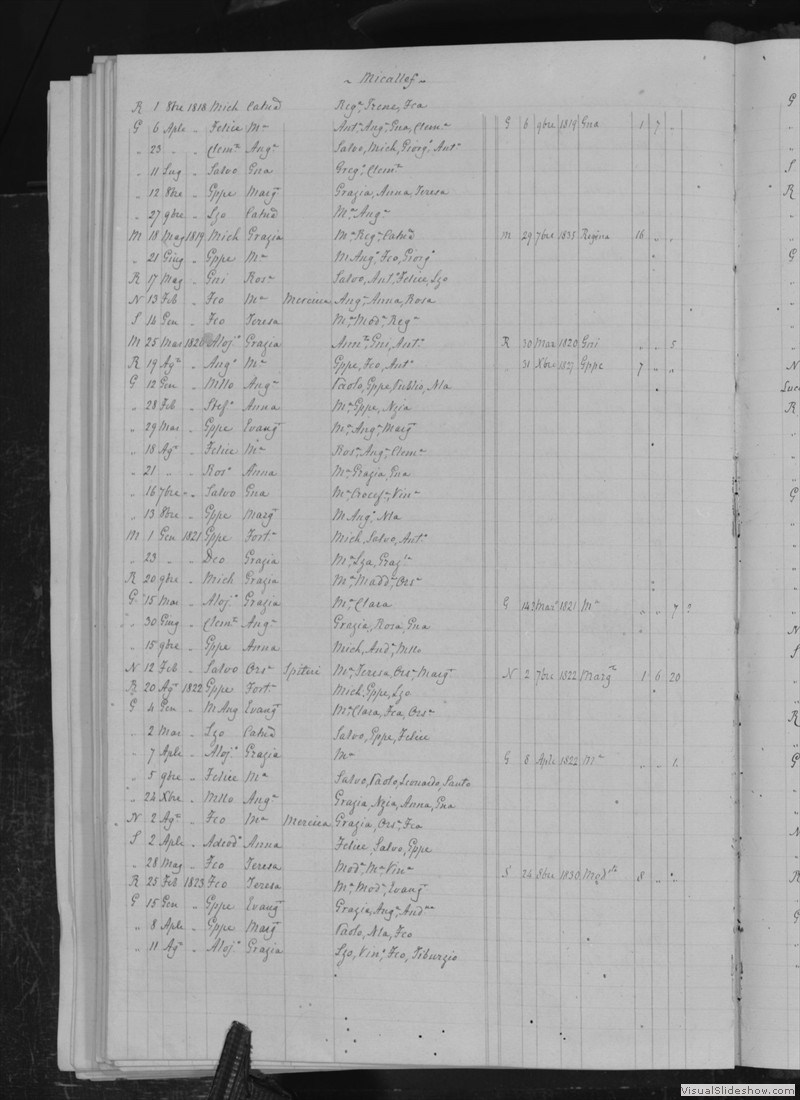 ~ Micallef ~
R 1 8bre 1818 Mich Catnd Regª, Irene, Fca
G 6 Aple „ Felice Mª Antª, Angª, Gna, Clemª G 6 9bre 1819 Gna 1 7 „
„ 23 „ „ Clemte Angª Salvo, Mich, Giorgº, Antº
„ 11 Lug „ Salvo Gna Gregº, Clemte
„ 12 8bre „ Gppe Margª Grazia, Anna, Teresa
„ 27 9bre „ Lzo Catnd Mª, Angª
M 18 Mag 1819 Mich Grazia Mª, Regª, Catnd M 29 7bre 1835 Regina 16 „ „
„ 21 Giug „ Gppe Mª M Angº, Fco, Giorgº
R 17 Mag „ Gni Rosª Salvo, Antº, Felice, Lzo
N 13 Feb „ Fco Mª Mercieca Angª, Anna, Rosa
S 14 Gen „ Fco Teresa Mª, Modª, Regª
M 25 Mar 1820 Alojº Grazia Gni, Antº R 30 Mar 1820 Gni „ „ 5
R 19 Agº „ Angº Mª Gppe, Fco, Antº „ 31 Xbre 1827 Gppe 7 „ „
G 12 Gen „ Mllo Angª Paolo, Gppe, Publio, Nla
„ 28 Feb „ Stefº Anna Mª, Gppe, Nzia
„ 29 Mar „ Gppe Evangª Mª, Angª, Margª
„ 18 Agº „ Felice Mª Rosª, Angª, Clemª
„ 21 „ „ Rosº Anna Mª, Grazia, Gna
„ 16 7bre „ Salvo Gna Mª, Crocefª, Vinª
„ 13 8bre „ Gppe Margª M Angº, Nla
M 1 Gen 1821 Gppe Fortª Mich, Salvo, Antº
„ 23 „ „ Dco Grazia Mª, Lza, Grazla
R 20 9bre „ Mich Grazia Mª, Maddª, Orsª
G 15 Mar „ Alojº Grazia Mª, Clara G 14? Marº 1821 Mª „ „ 7 ?
„ 30 Giug „ Clemte Angª Grazia, Rosa, Gna
„ 15 9bre „ Gppe Anna Mich, Andª, Mllo
N 12 Feb „ Salvo Orsª Spiteri Mª, Teresa, Orsª, Margª N 2 7bre 1822 Margta 1 6 20
R 20 Agº 1822 Gppe Fortª Mich, Gppe, Lzo
G 4 Gen „ M Ang Evangª Mª, Clara, Fca, Orsª
„ 2 Mar „ Lzo Catnd Salvo, Gppe, Felice
„ 7 Aple „ Alojº Grazia Mª G 8 Aple 1822 Mª „ „ 1
„ 5 9bre „ Felice Mª Salvo, Paolo, Leonardo, Santo
„ 24 Xbre „ Mllo Angª Grazia, Nzia, Anna, Gna
N 2 Agº „ Fco Mª Mercieca Grazia, Orsª, Fca
S 2 Aple „ Adeodº Anna Felice, Salvo, Gppe
„ 28 Mag „ Fco Teresa Modª, Mª, Vinª S 24 8bre 1830 Modsta 8 „ „
R 25 Feb 1823 Fco Teresa Mª, Modª, Evangª
G 15 Gen „ Gppe Evangª Grazia, Angª, Andna
„ 8 Aple „ Gppe Margª Paolo, Nla, Fco
„ 11 Agº „ Alojº Grazia Lzo, Vinº, Fco, Tiburzio
VisualSlideshow.com